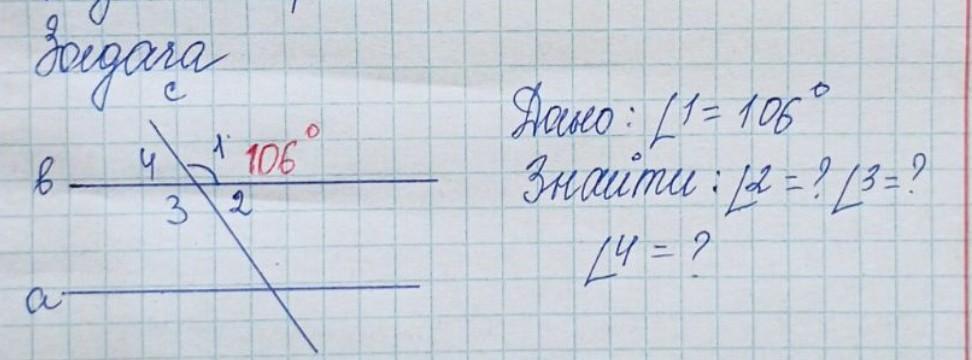 Задача
c
4 1 106°
в
3 2
a
Дано: ∠1 = 106°
Знайти: ∠2 = ? ∠3 = ?
∠4 = ?